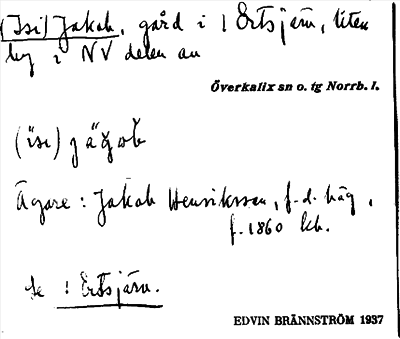 (Isi) Jakob, gård i Ertsjärv, liten
by i NV delen av
Överkalix sn o. tg Norrb. l.
(isi) jägob
Ägare: Jakob Henriksson, f.d. häg.
f. 1860 kb.
Se: Ertsjärv.
EDVIN BRÄNNSTRÖM 1937